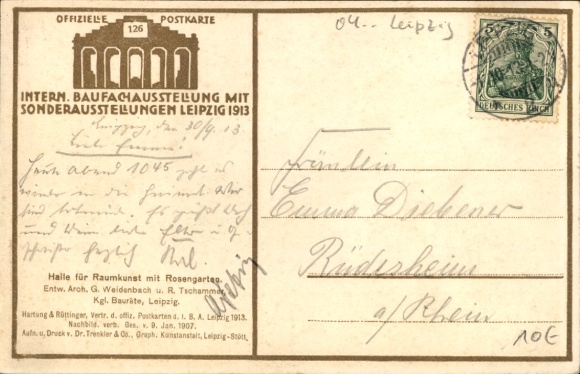 OFFIZIELLE POSTKARTE
126
INTERN. BAUFACHAUSSTELLUNG MIT
SONDERAUSSTELLUNGEN LEIPZIG 1913
Leipzig, den 30/9. 13.
Liebe Emma!
Heute Abend 10 45 geht es
wieder in die Heimat. Wir
sind todmüde. Es grüßt Dich
und Deine lieben Eltern u. Ge-
schwister herzlich Karl.
Halle für Raumkunst mit Rosengarten.
Entw. Arch. G. Weidenbach u. R. Tschammer,
Kgl. Bauräte, Leipzig.
Hartung & Rüttinger, Vertr. d. offiz. Postkarten d. I. B. A. Leipzig 1913.
Nachbild. verb. Ges. v. 9. Jan. 1907.
Aufn. u. Druck v. Dr. Trenkler & Co., Graph. Kunstanstalt, Leipzig-Stött.
04.. Leipzig
5 5
DEUTSCHES REICH
Fräulein
Emma Diebener
Rüdesheim
a/Rhein
10€